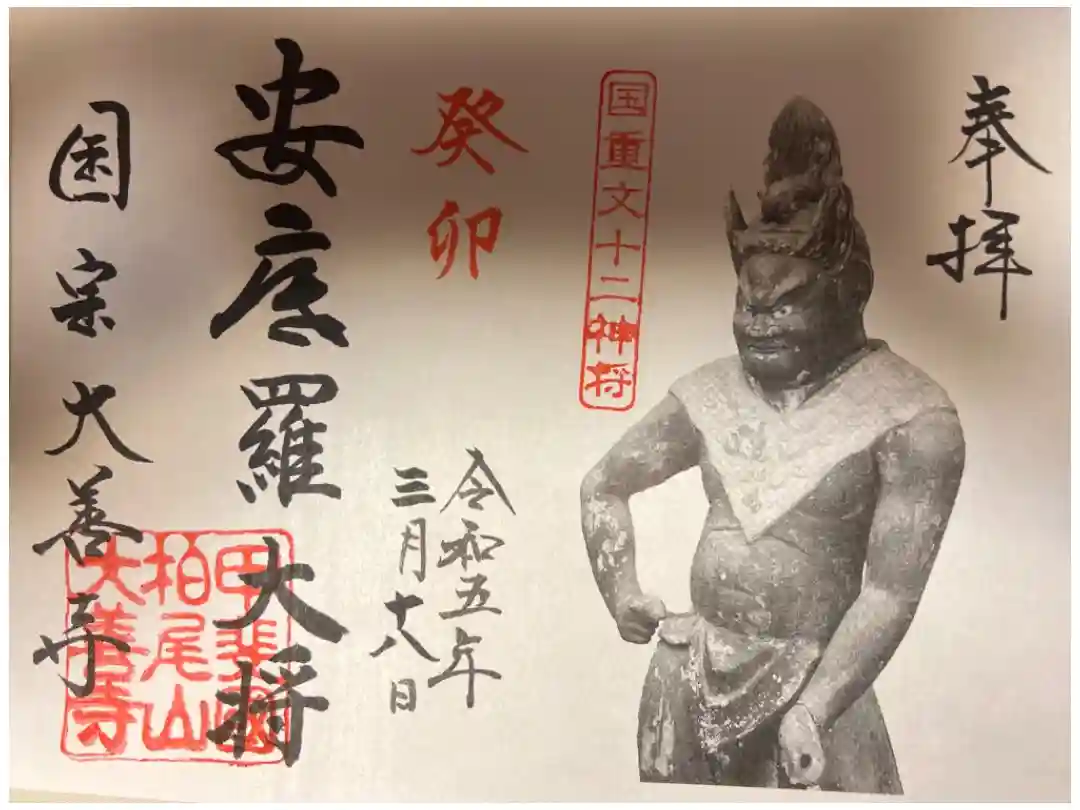 奉拝
国重文十二神将
癸卯
令和五年
三月十八日
安底羅大将
国宗大善寺
甲斐國
柏尾山
大善寺